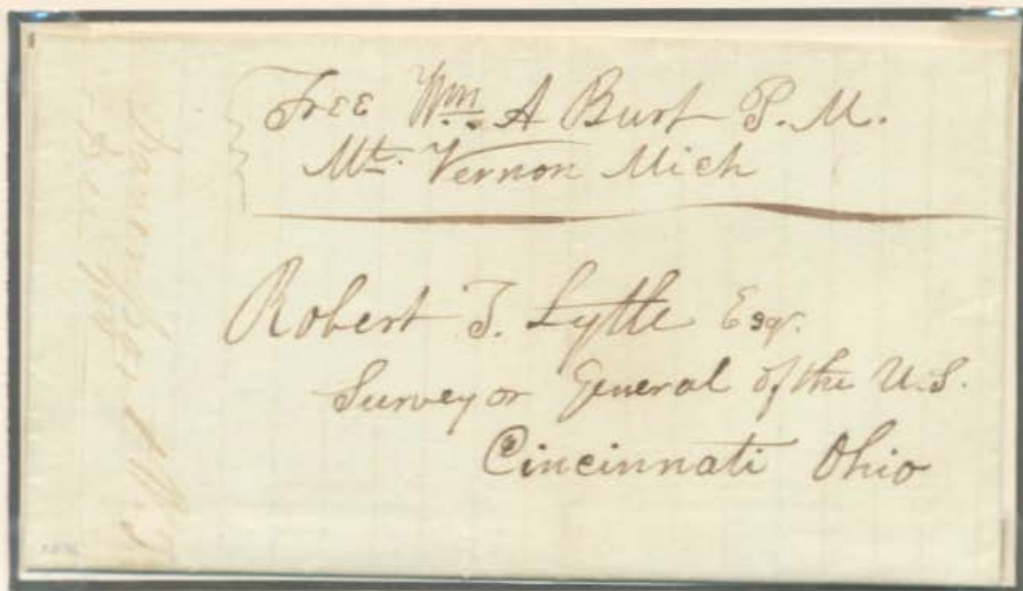 Free Wm. A Burt P. M.
Mt. Vernon Mich
Robert T. Lytle Esqr.
Surveyor General of the U.S.
Cincinnati Ohio